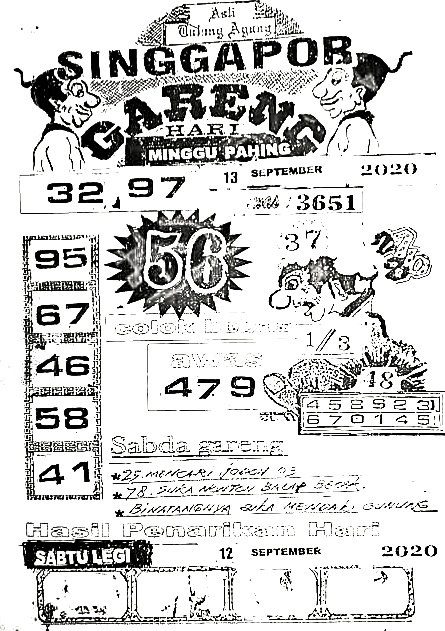 Asli
Tulung Agung
SINGGAPOR
GARENG
HARI
MINGGU PAHING
13 SEPTEMBER 2020
32, 97
/ 3651
95
67
46
58
41
56
37
colok
1/3
AWAS
479
48
458923
670145
Sabda gareng
*25. MENCARI
*78. SUKA NONTON BALAP
* BINATANGNYA SUKA MENCARI GUNUNG
Hasil Penarikan Hari
SABTU LEGI 12 SEPTEMBER 2020